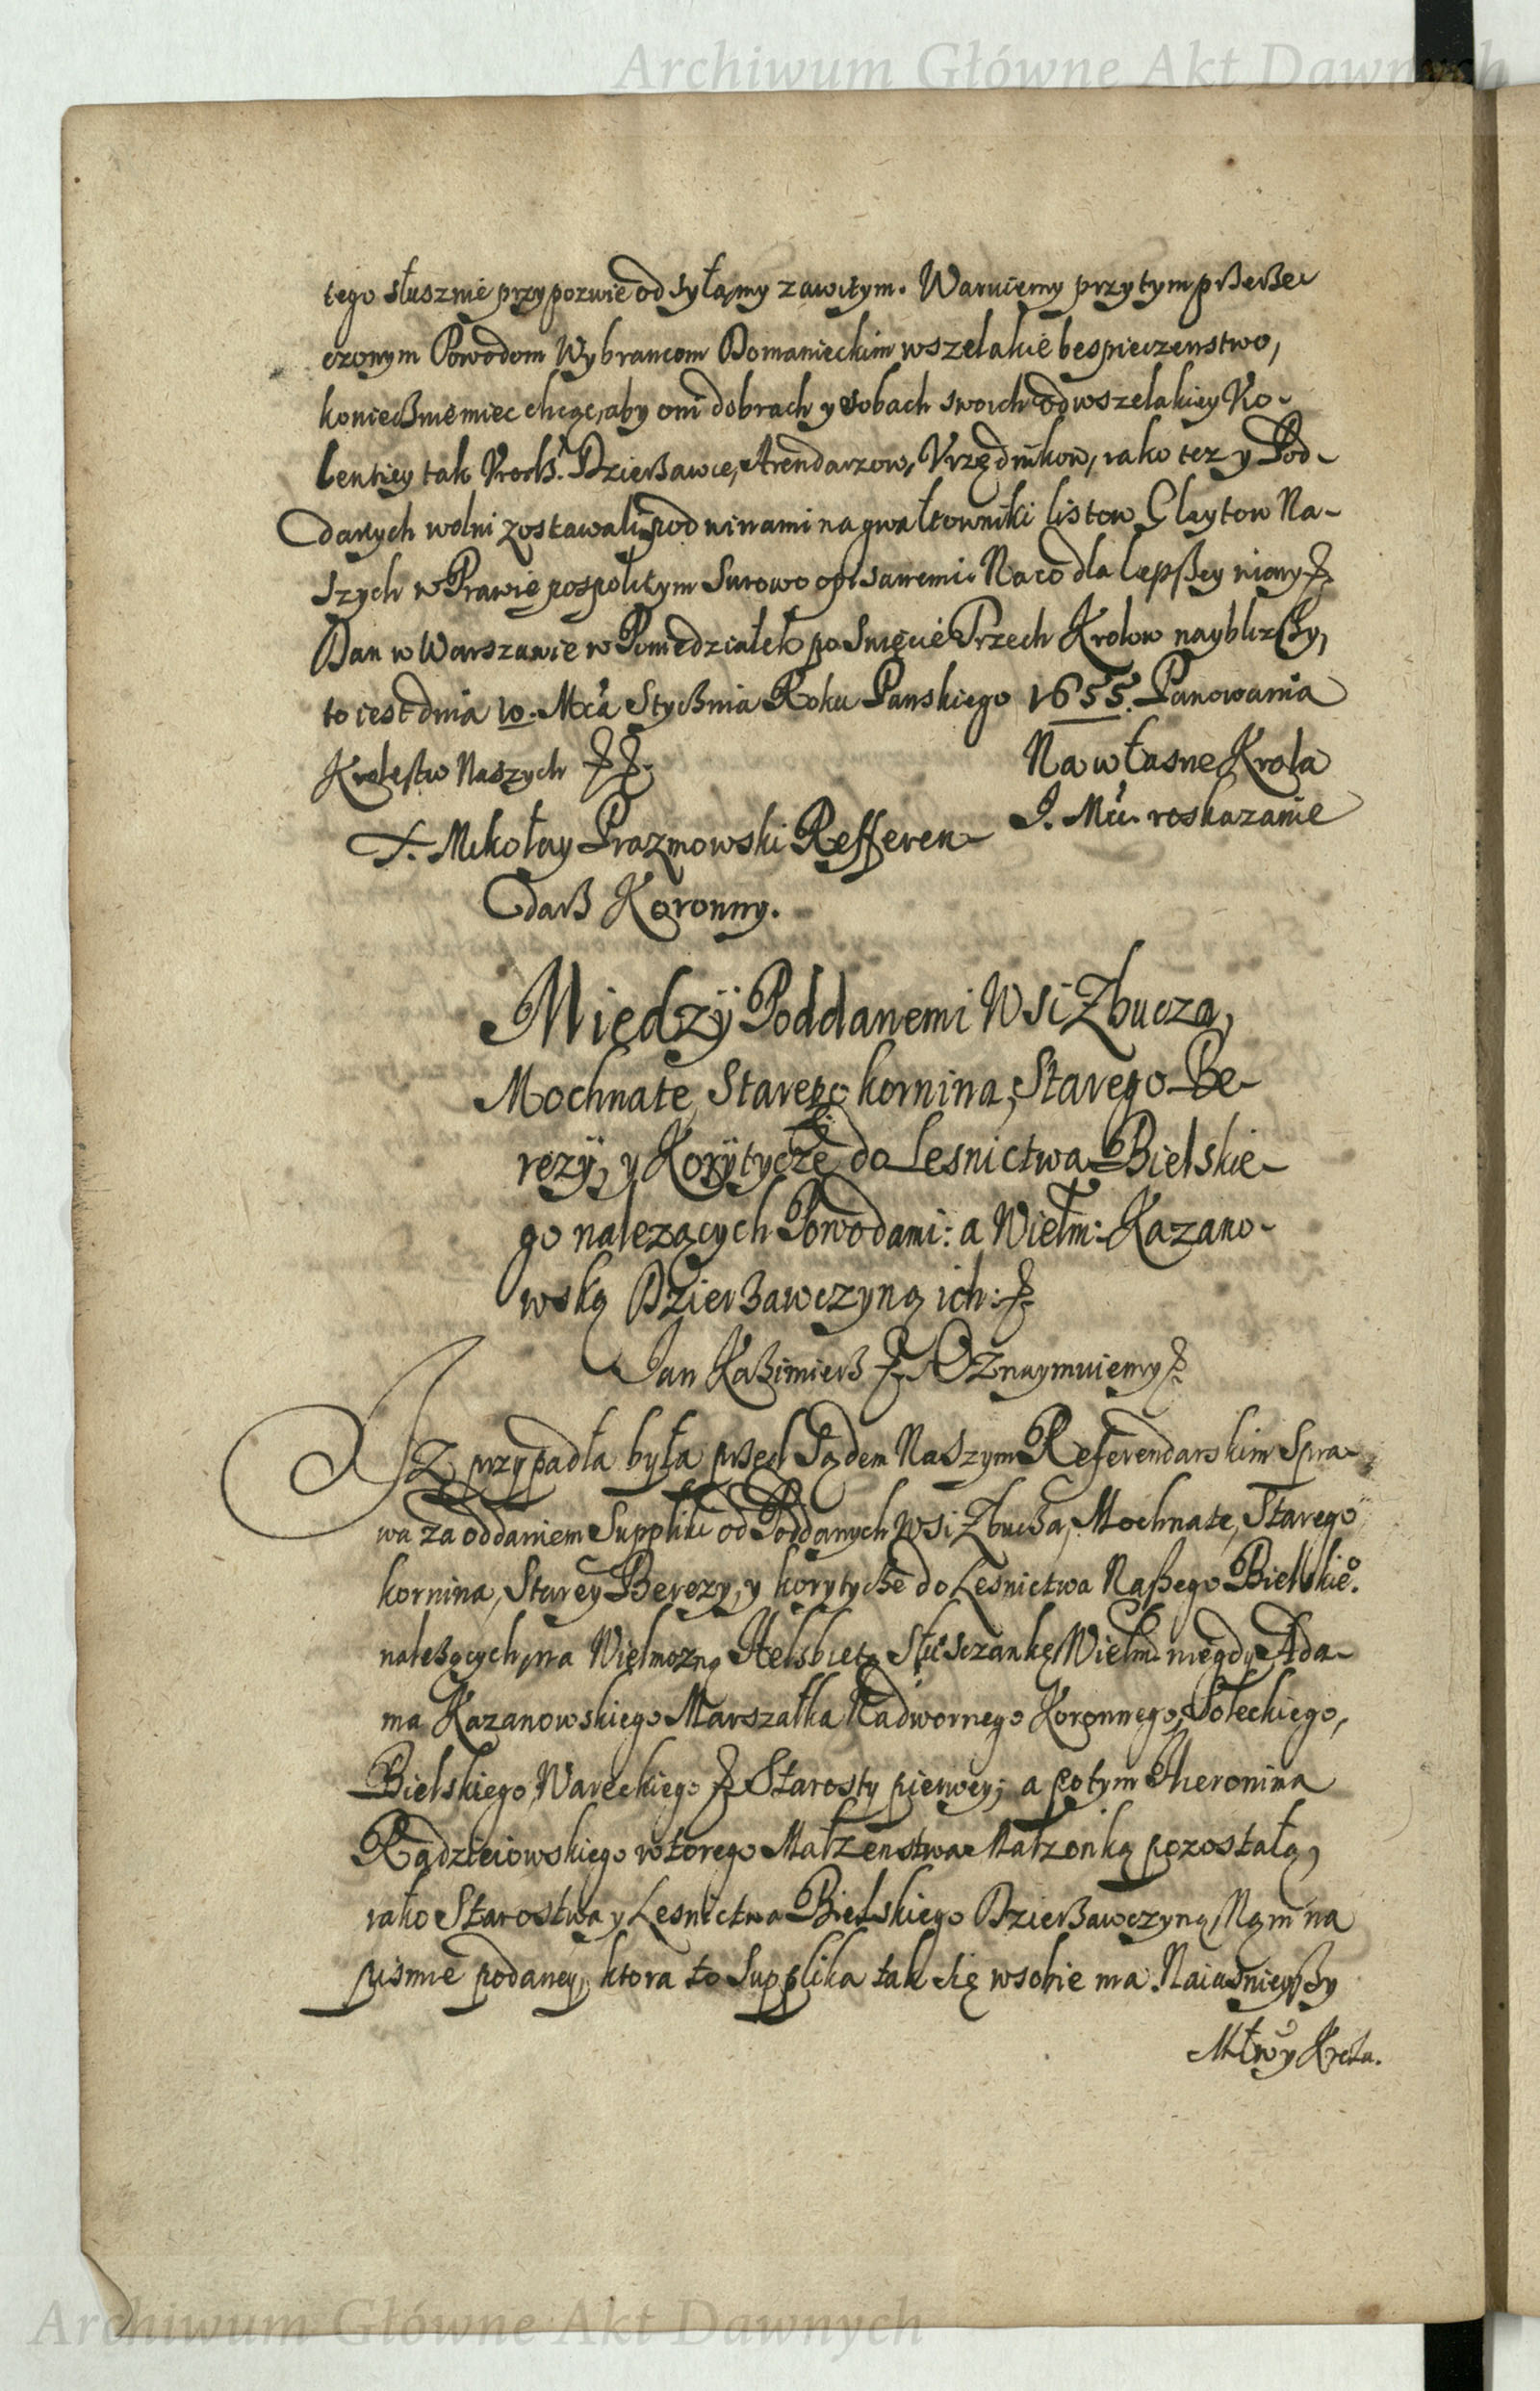 Archiwum Główne Akt Dawnych
tego słusznie przypozwie odsyłamy zawitym. Waruiemy przytym przerze-
czonym Powodom Wybrancom Domanieckim wszelakie bespieczenstwo,
koniecznie miec chcąc, aby oni dobrach y osobach swoich od wszelakiey Vio-
lentiey tak Vrodz. Dzierżawce, Arendarzow, Vrzędnikow, iako tez y Pod-
danych wolni zostawali, pod winami na gwałtowniki listow Gleytow Na-
szych w Prawie pospolitym surowo opisanemi. Na co dla lepszey wiary
Dan w Warszawie w Poniedziałek po Święcie Trzech Krolow naybliższy,
to iest dnia 10. Mca Stycznia Roku Panskiego 1655. Panowania
Krolestw Naszych
Na własne Krola
J. Mci roskazanie
X. Mikołay Prazmowski Refferen-
darz Koronny.
Między Poddanemi Wsi Zbucza,
Mochnate, Starego kornina, Starego Be-
rezy, y Korytycze do Lesnictwa Bielskie-
go nalezących Powodami: a Wielm: Kazano-
wską Dzierzawczyną ich:
Jan Kazimierz Oznaymuiemy
Iz przypadła była przed Sądem Naszym Referendarskim Spra-
wa za oddaniem Suppliki od Poddanych Wsi Zbucza, Mochnate, Starego
kornina, Starey Berezy, y korytycze do Lesnictwa Naszego Bielskieo.
należących, na Wielmozną Helsbietę Słuszczankę Wielm. niegdy Ada-
ma Kazanowskiego Marszałka Nadwornego Koronnego, Soleckiego,
Bielskiego, Wareckiego Starosty pierwey; a potym Hieronima
Radzieiowskiego wtorego Małzenstwa Małzonką pozostałą,
iako Starostwa y Lesnictwa Bielskiego Dzierzawczyną, Nam na
pismie podaney, ktora to Supplika tak się wsobie ma. Naiasnieyszy
Młwy Krolu.
Archiwum Główne Akt Dawnych